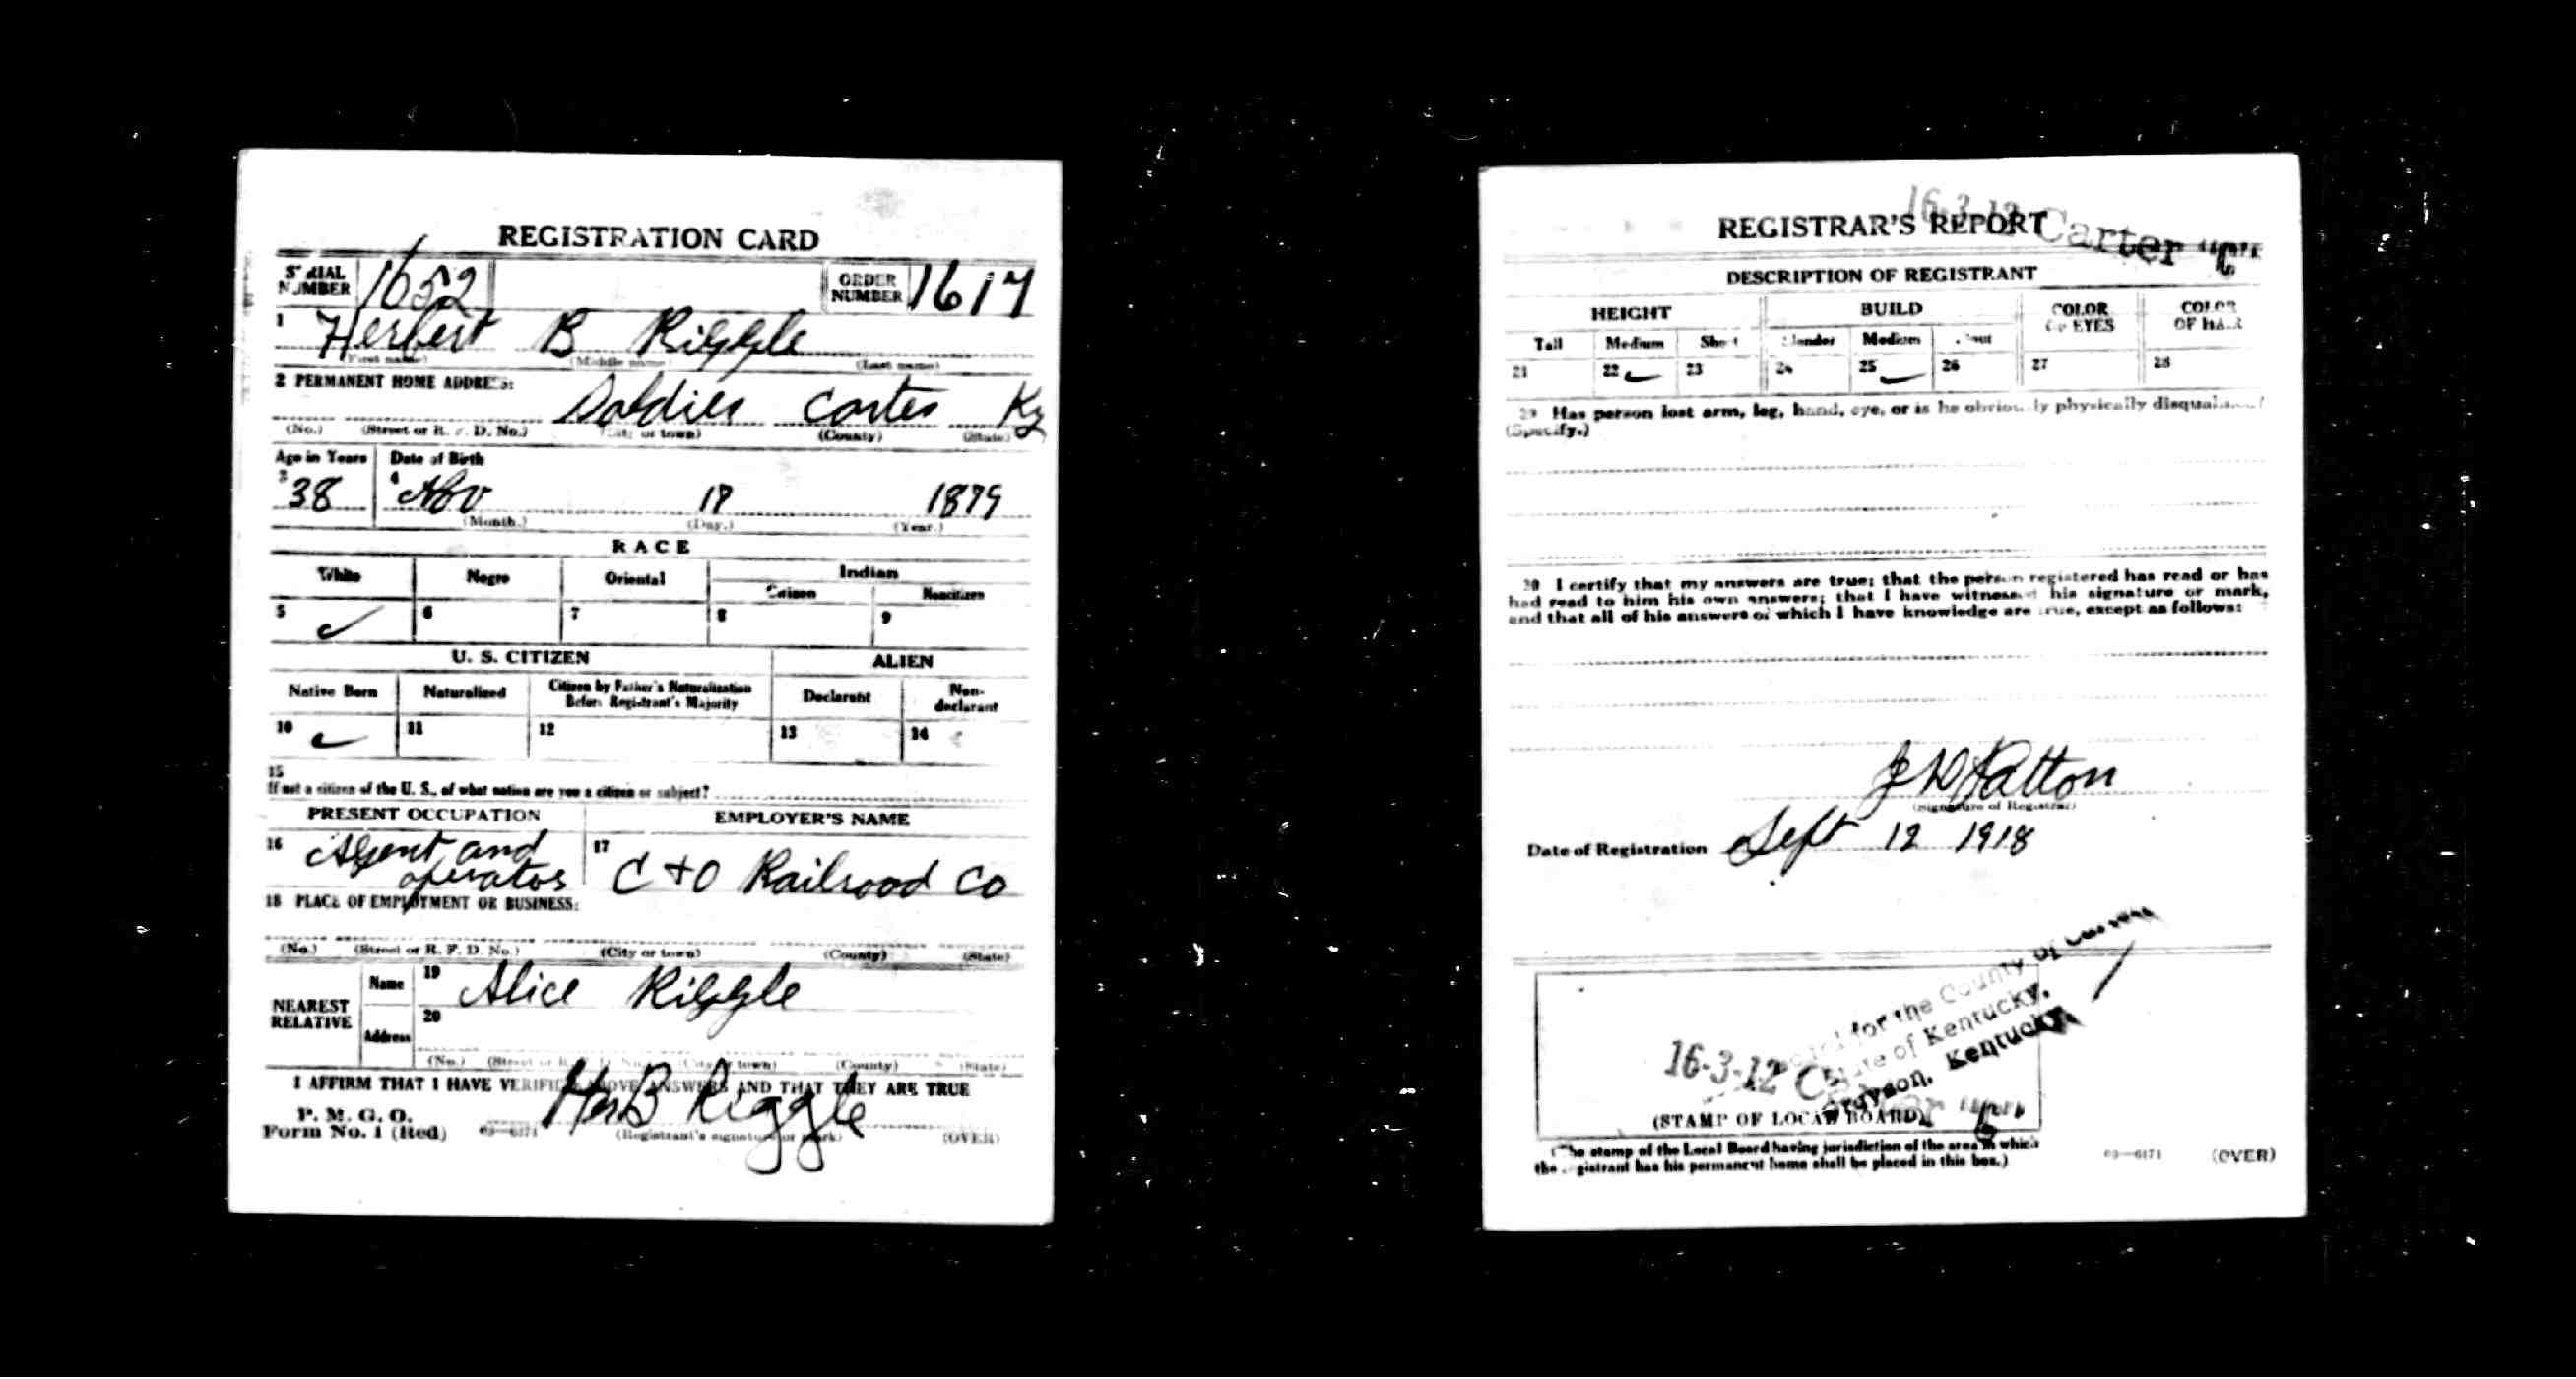 REGISTRATION CARD
SERIAL NUMBER 1652 ORDER NUMBER 1617
1 Herbert B Riggle
(First name) (Middle name) (Last name)
2 PERMANENT HOME ADDRESS:
Soldier Carter Ky
(No.) (Street or R. F. D. No.) (City or town) (County) (State)
Age in Years Date of Birth
3 38 4 Nov 18 1879
(Month.) (Day.) (Year.)
RACE
White Negro Oriental Indian
Citizen Noncitizen
5 ✓ 6 7 8 9
U. S. CITIZEN ALIEN
Native Born Naturalized Citizen by Father's Naturalization Before Registrant's Majority Declarant Non-declarant
10 ✓ 11 12 13 14
15
If not a citizen of the U. S., of what nation are you a citizen or subject?
PRESENT OCCUPATION EMPLOYER'S NAME
16 Agent and operator 17 C + O Railroad Co
18 PLACE OF EMPLOYMENT OR BUSINESS:
(No.) (Street or R. F. D. No.) (City or town) (County) (State)
NEAREST RELATIVE
Name 19 Alice Riggle
Address 20
(No.) (Street or R. F. D. No.) (City or town) (County) (State)
I AFFIRM THAT I HAVE VERIFIED ABOVE ANSWERS AND THAT THEY ARE TRUE
P. M. G. O.
Form No. 1 (Red) 03—6171 Her B Riggle
(Registrant's signature or mark) (OVER)
16-3-12 Carter "C"
REGISTRAR'S REPORT
DESCRIPTION OF REGISTRANT
HEIGHT BUILD COLOR OF EYES COLOR OF HAIR
Tall Medium Short Slender Medium Stout
21 22 ✓ 23 24 25 ✓ 26 27 28
29 Has person lost arm, leg, hand, eye, or is he obviously physically disqualified?
(Specify.)
30 I certify that my answers are true; that the person registered has read or has
had read to him his own answers; that I have witnessed his signature or mark,
and that all of his answers of which I have knowledge are true, except as follows:
Patton
(Signature of Registrar)
Date of Registration Sept 12 1918
for the County of Carter
State of Kentucky,
Grayson, Kentucky
16-3-12 C
(STAMP OF LOCAL BOARD)
(The stamp of the Local Board having jurisdiction of the area in which
the registrant has his permanent home shall be placed in this box.)
03—6171 (OVER)